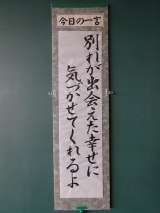 今日の一言
別れが出会えた幸せに
気づかせてくれるよ